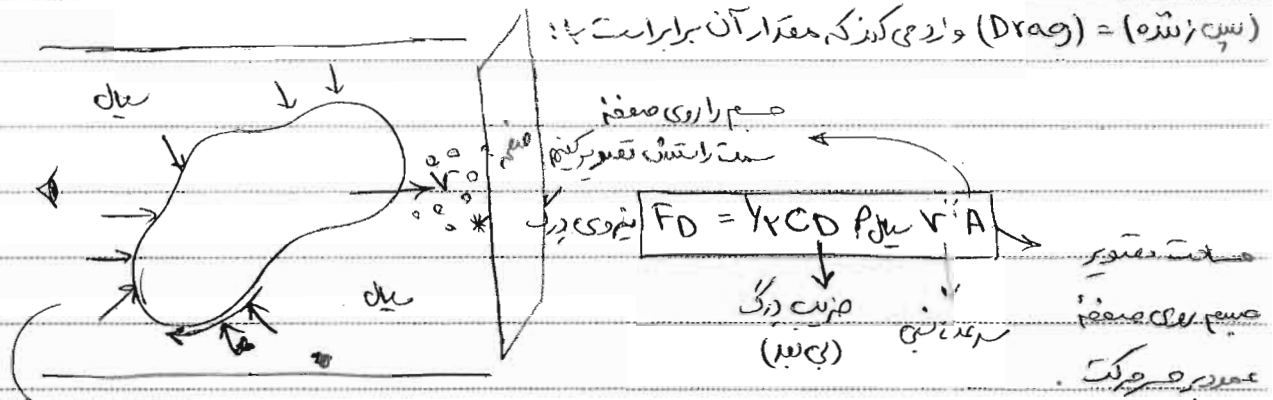 (پس زننده) = (Drag) وارد می کند که مقدار آن برابر است با:
سیال
جسم را روی صفحه
سمت راستش تصویر کنیم
صفحه
V
نیروی درگ F_D = ۱/۲ C_D ρ سیال V² A
ضریب درگ
(بی بعد)
سرعت نسبی
مساحت تصویر
جسم روی صفحهٔ
عمود بر حرکت.
سیال